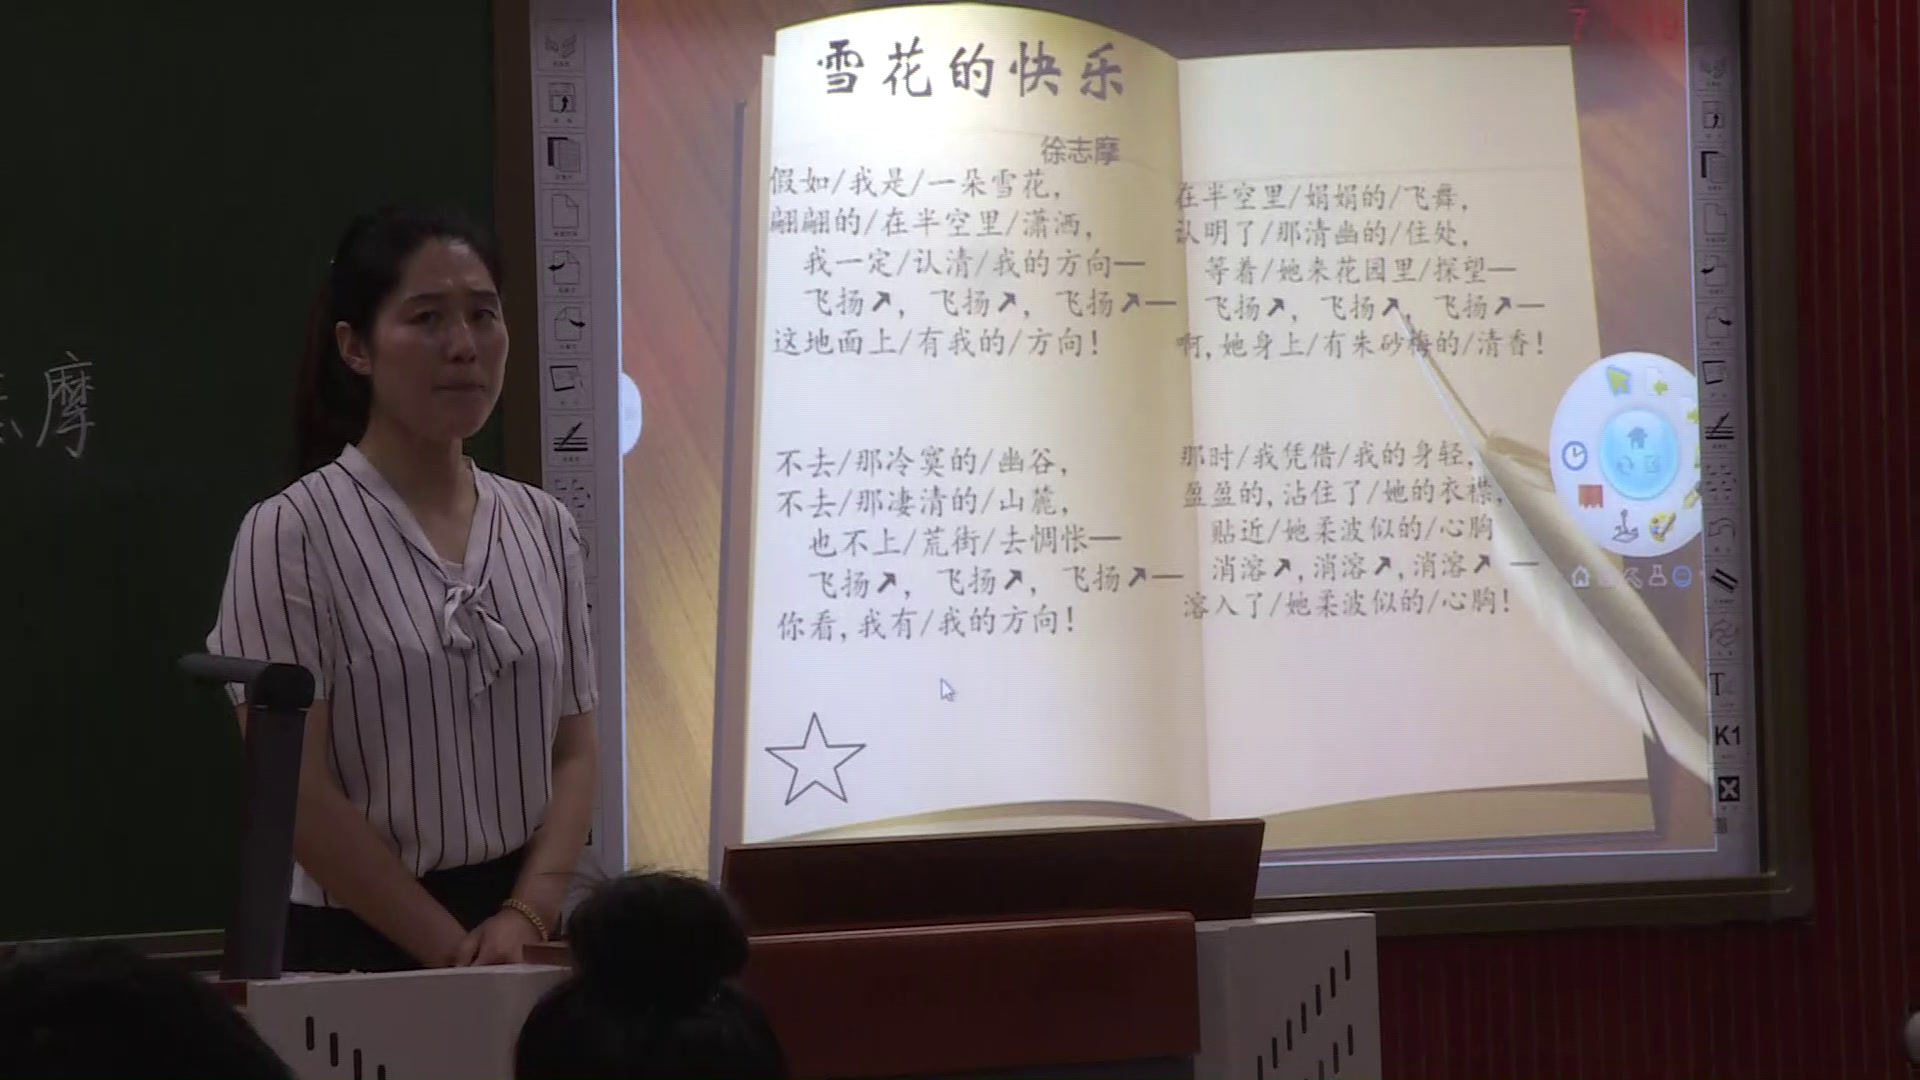 雪花的快乐
徐志摩
假如/我是/一朵雪花，
翩翩的/在半空里/潇洒，
我一定/认清/我的方向—
飞扬↗，飞扬↗，飞扬↗—
这地面上/有我的/方向！
不去/那冷寞的/幽谷，
不去/那凄清的/山麓，
也不上/荒街/去惆怅—
飞扬↗，飞扬↗，飞扬↗—
你看，我有/我的方向！
在半空里/娟娟的/飞舞，
认明了/那清幽的/住处，
等着/她来花园里/探望—
飞扬↗，飞扬↗，飞扬↗—
啊，她身上/有朱砂梅的/清香！
那时/我凭借/我的身轻，
盈盈的，沾住了/她的衣襟，
贴近/她柔波似的/心胸
消溶↗，消溶↗，消溶↗—
溶入了/她柔波似的/心胸！
摩
T
K1